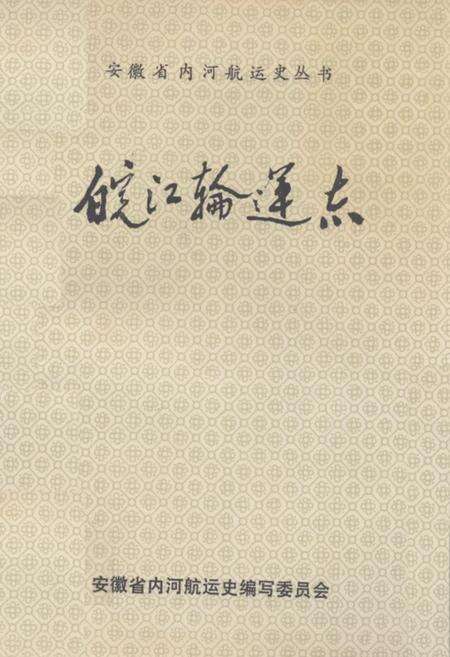 安徽省内河航运史丛书
皖江轮运志
安徽省内河航运史编写委员会